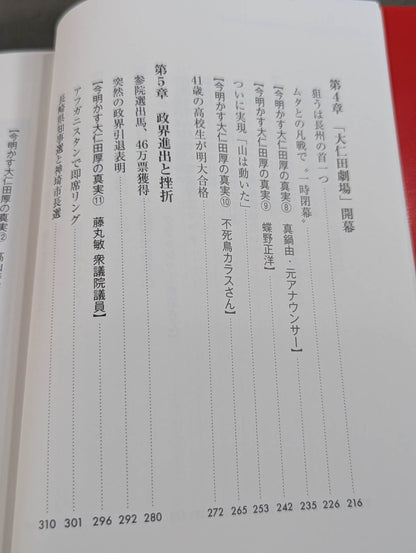 第4章 「大仁田劇場」開幕
狙うは長州の首一つ 216
ムタとの凡戦で〝一時閉幕〟 226
【今明かす大仁田厚の真実⑧ 真鍋由・元アナウンサー】 235
【今明かす大仁田厚の真実⑨ 蝶野正洋】 242
ついに実現「山は動いた」 253
41歳の高校生が明大合格 265
【今明かす大仁田厚の真実⑩ 不死鳥カラスさん】 272
第5章 政界進出と挫折
参院選出馬、46万票獲得 280
突然の政界引退表明 292
【今明かす大仁田厚の真実⑪ 藤丸敏 衆議院議員】 296
アフガニスタンで即席リング 301
長崎県知事選と神埼市長選 310
【今明かす大仁田厚の真実②